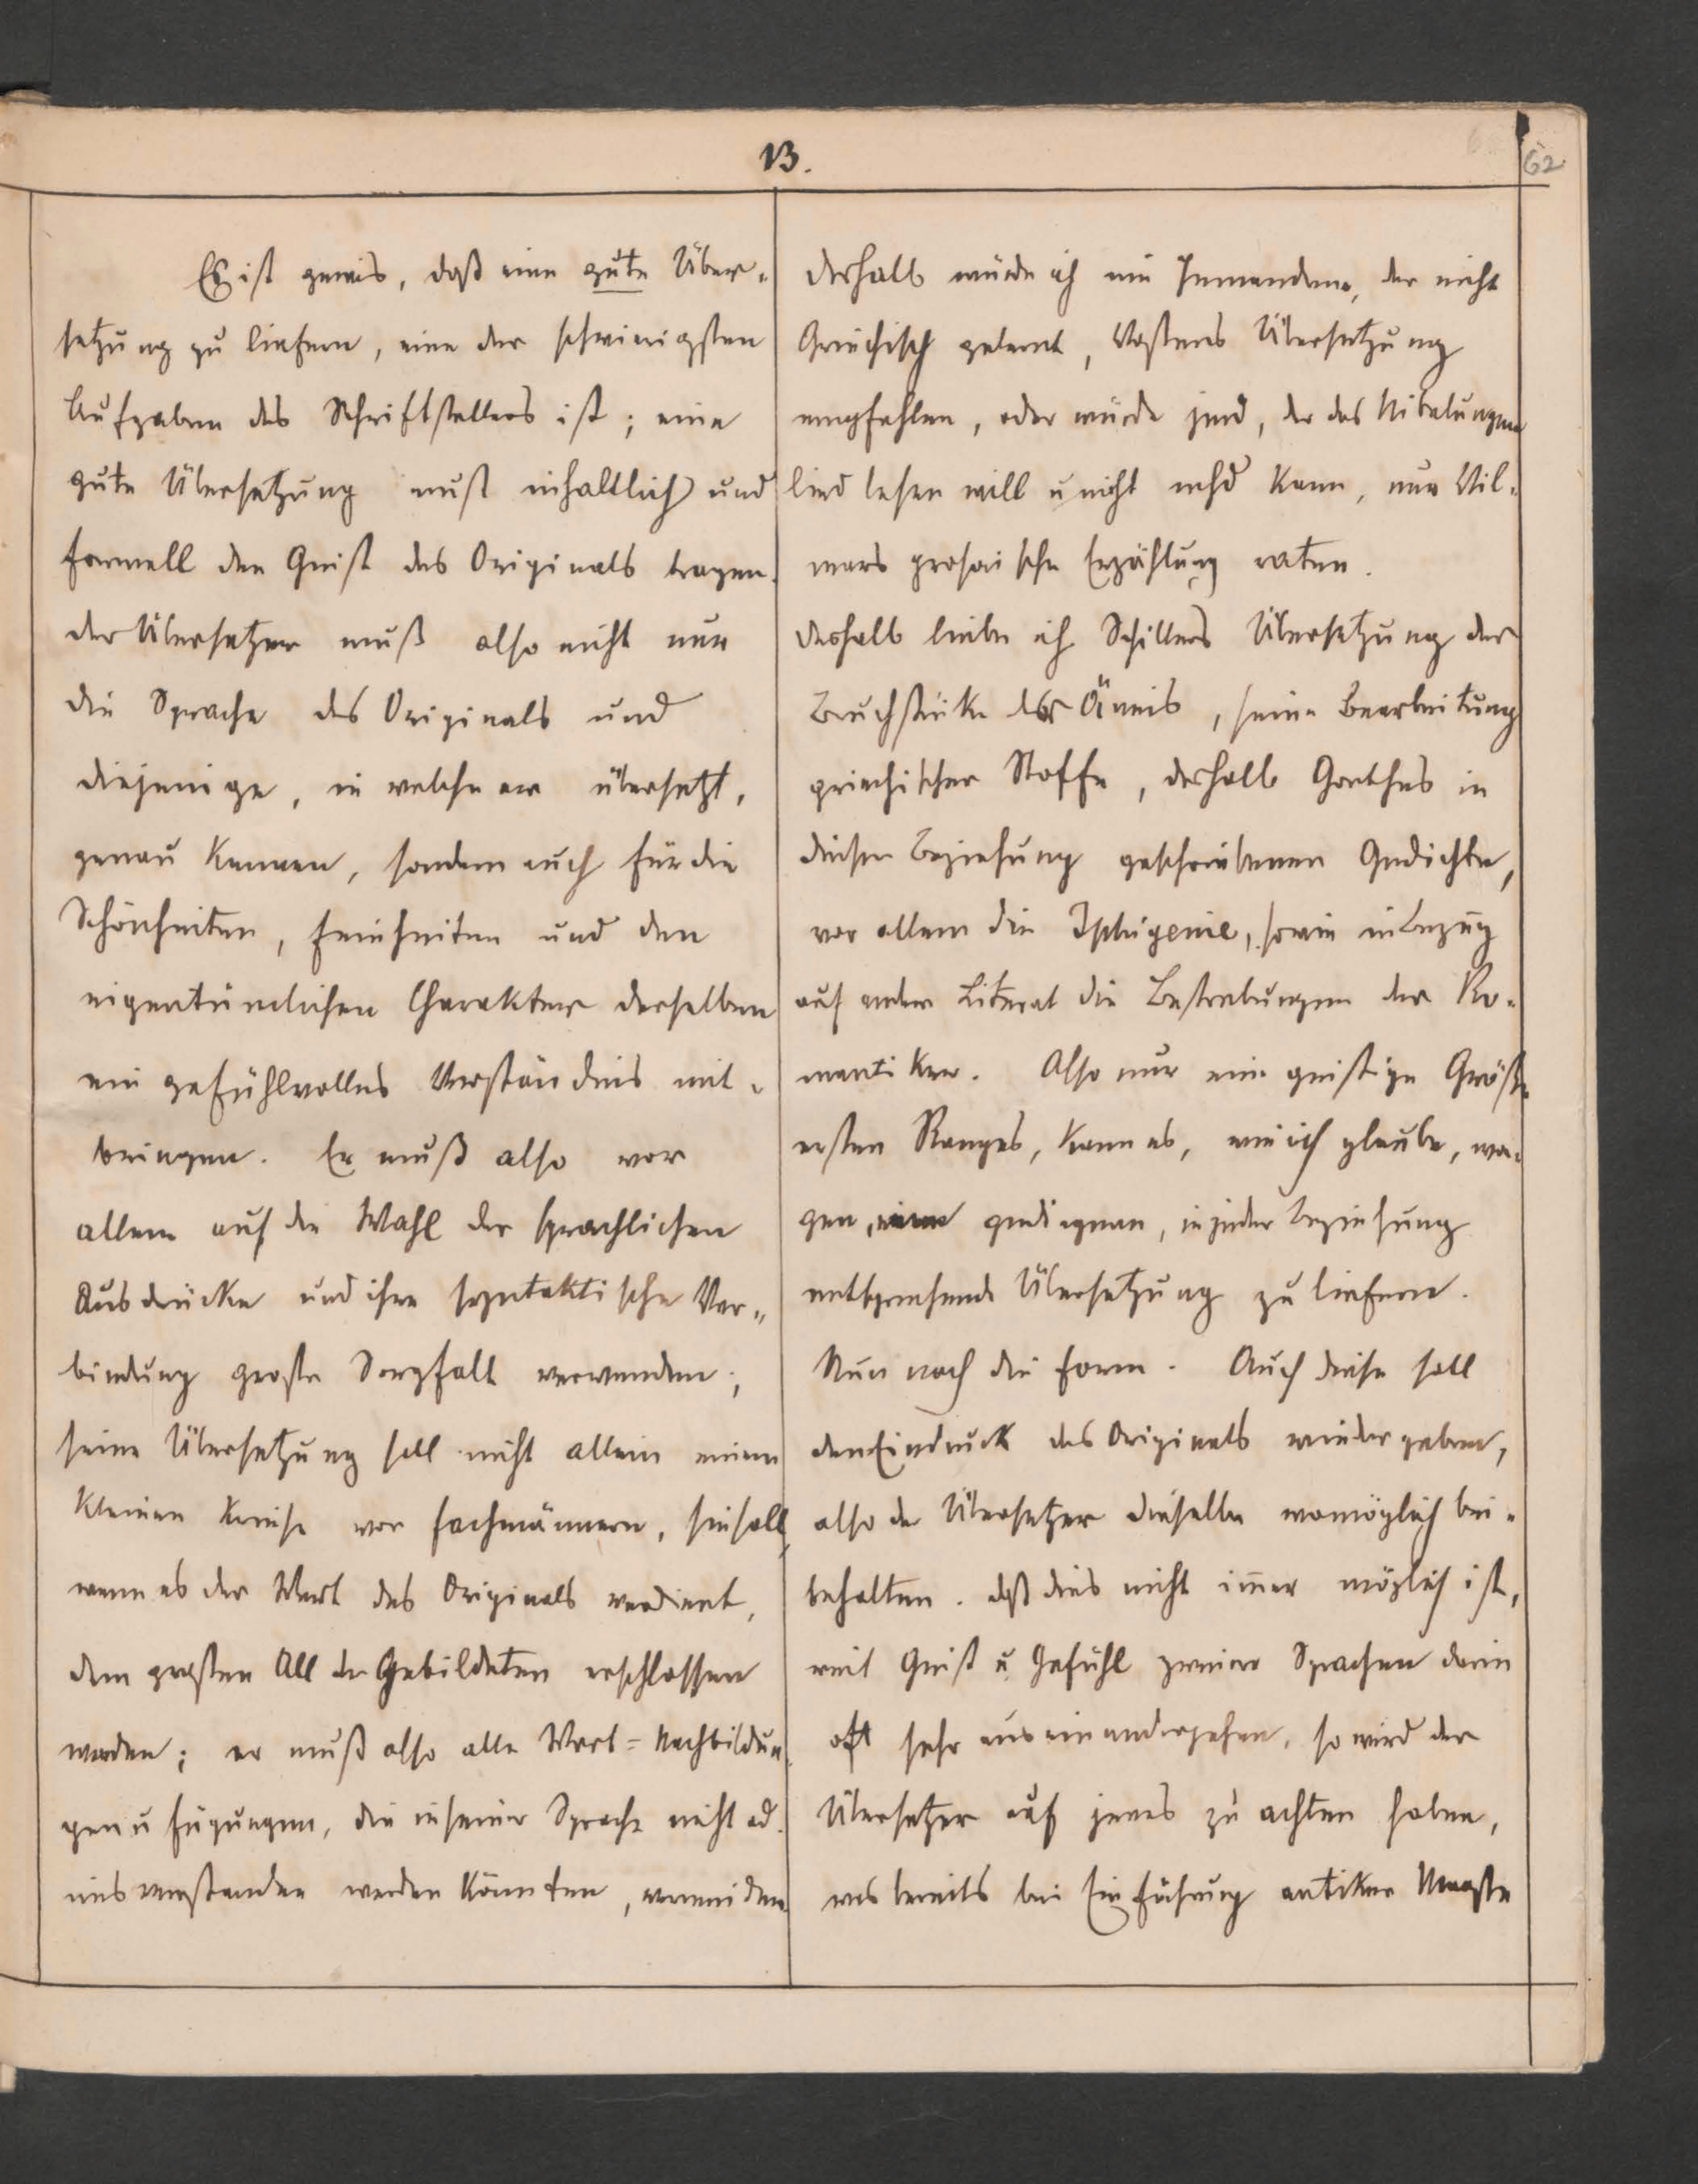 13.
62
Es ist gewis, daß eine gute Über-
setzung zu liefern, eine der schwierigsten
Aufgaben des Schriftstellers ist; eine
gute Übersetzung muß inhaltlich und
formell den Geist des Originals tragen.
der Übersetzer muß also nicht nur
die Sprache des Originals und
diejenige, in welche er übersetzt,
genau kennen, sondern auch für die
Schönheiten, Feinheiten und den
eigentümlichen Charakter derselben
ein gefühlvolles Verständnis mit-
bringen. Er muß also vor
allem auf die Wahl der sprachlichen
Ausdrücke und ihre syntaktische Ver-
bindung große Sorgfalt verwenden;
seine Übersetzung soll nicht allein einem
kleinen Kreise von Fachmännern, sie soll,
wenn es der Wert des Originals verdient,
dem großen All der Gebildeten erschlossen
werden; er muß also alle Wort-Nachbildun
gen u Fügungen, die in seiner Sprache nicht od.
misverstanden werden könnten, vermeiden
deshalb würde ich nie Jemandem, der nicht
Griechisch gelernt, Vossens Übersetzung
empfehlen, oder würde jmd, der das Nibelungen
lied lesen will u nicht mhd kann, nur Vil-
mars prosaische Erzählung raten.
deshalb liebe ich Schillers Übersetzung der
Bruchstücke der Äneis, seine Bearbeitung
griechischer Stoffe, deshalb Goethes in
dieser Beziehung geschriebenen Gedichte,
vor allem die Iphigenie, sowie in Bezug
auf andere Literat die Bestrebungen der Ro-
mantiker. Also nur eine geistige Größe
ersten Ranges, kann es, wie ich glaube, wa-
gen, eine gediegene, in jeder Beziehung
entsprechende Übersetzung zu liefern.
Nun noch die Form. Auch diese soll
den Eindruck des Originals wiedergeben,
also der Übersetzer dieselbe womöglich bei-
behalten. daß dies nicht im̅er möglich ist,
weil Geist u. Gefühl zweier Sprachen darin
oft sehr auseinandergehen, so wird der
Übersetzer auf jenes zu achten haben,
was bereits bei Einführung antiker Maaße